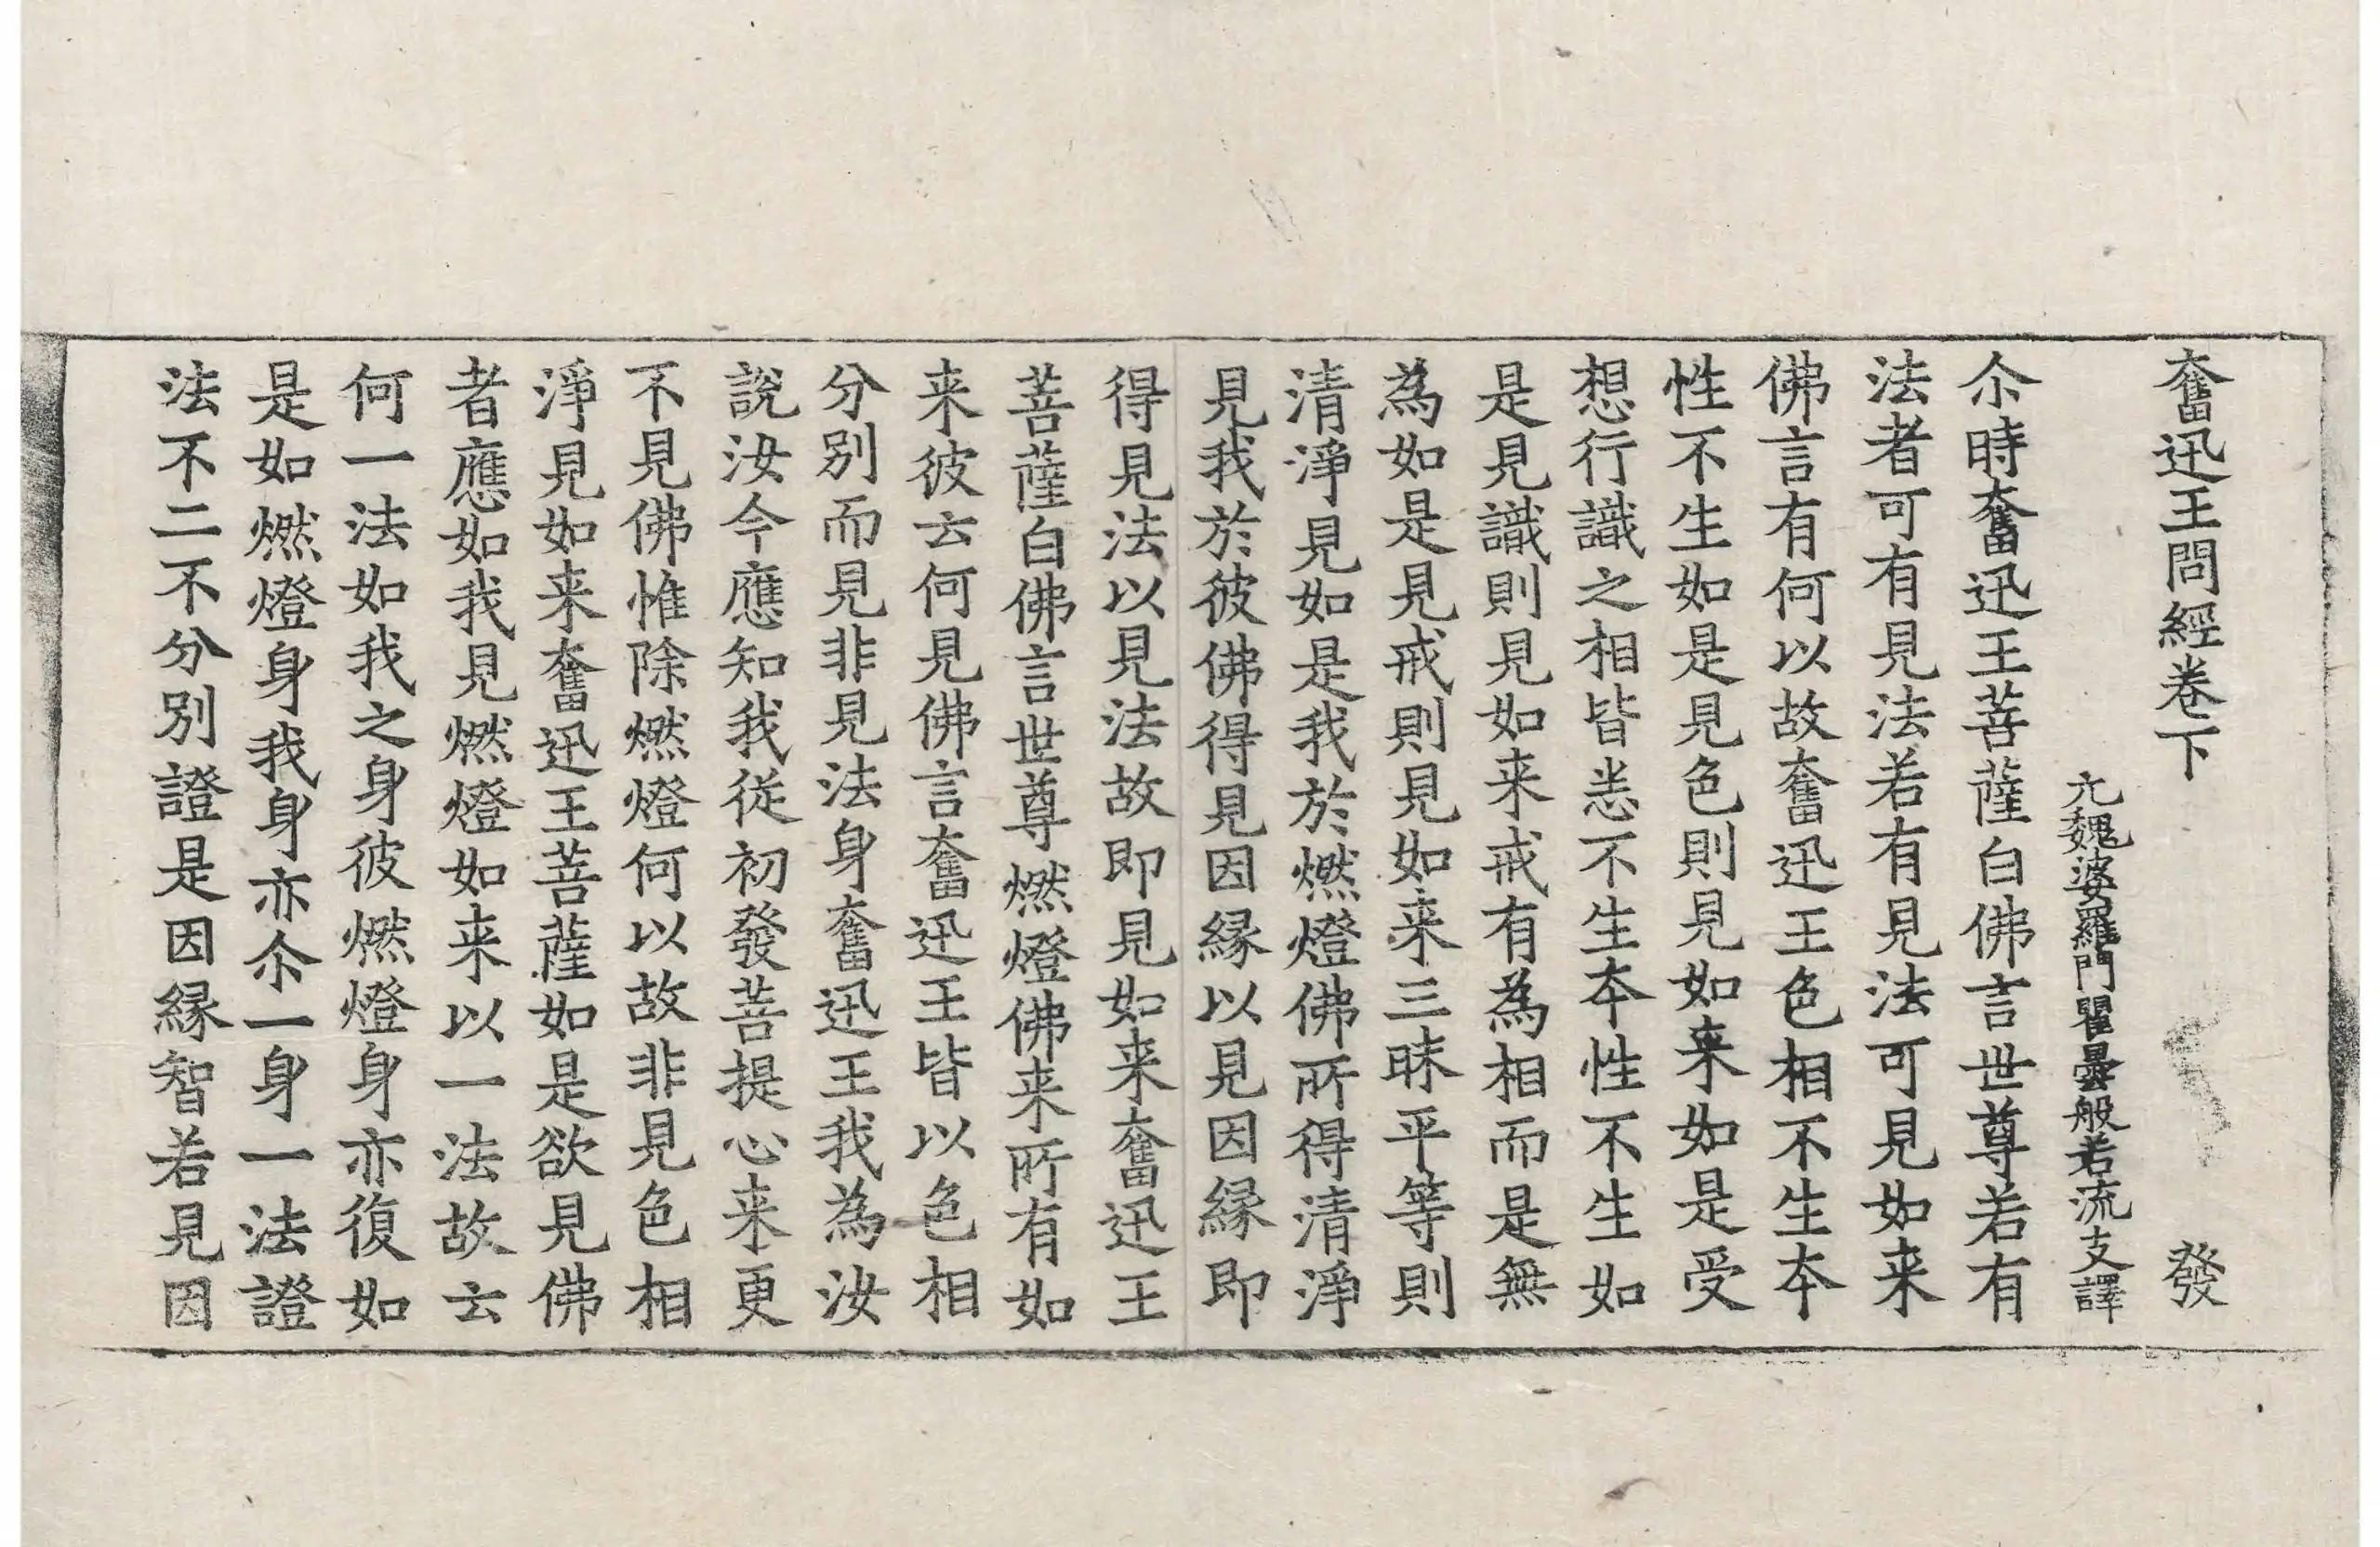 奮迅王問經卷下 發
元魏婆羅門瞿曇般若流支譯
尒時奮迅王菩薩白佛言世尊若有
法者可有見法若有見法可見如来
佛言有何以故奮迅王色相不生夲
性不生如是見色則見如来如是受
想行識之相皆悉不生夲性不生如
是見識則見如来戒有為相而是無
為如是見戒則見如来三昧平等則
清淨見如是我於燃燈佛所得清淨
見我於彼佛得見因縁以見因縁即
得見法以見法故即見如来奮迅王
菩薩白佛言世尊燃燈佛来所有如
来彼云何見佛言奮迅王皆以色相
分別而見非見法身奮迅王我為汝
說汝今應知我従初發菩提心来更
不見佛惟除燃燈何以故非見色相
淨見如来奮迅王菩薩如是欲見佛
者應如我見燃燈如来以一法故云
何一法如我之身彼燃燈身亦復如
是如燃燈身我身亦尒一身一法證
法不二不分別證是因縁智若見因